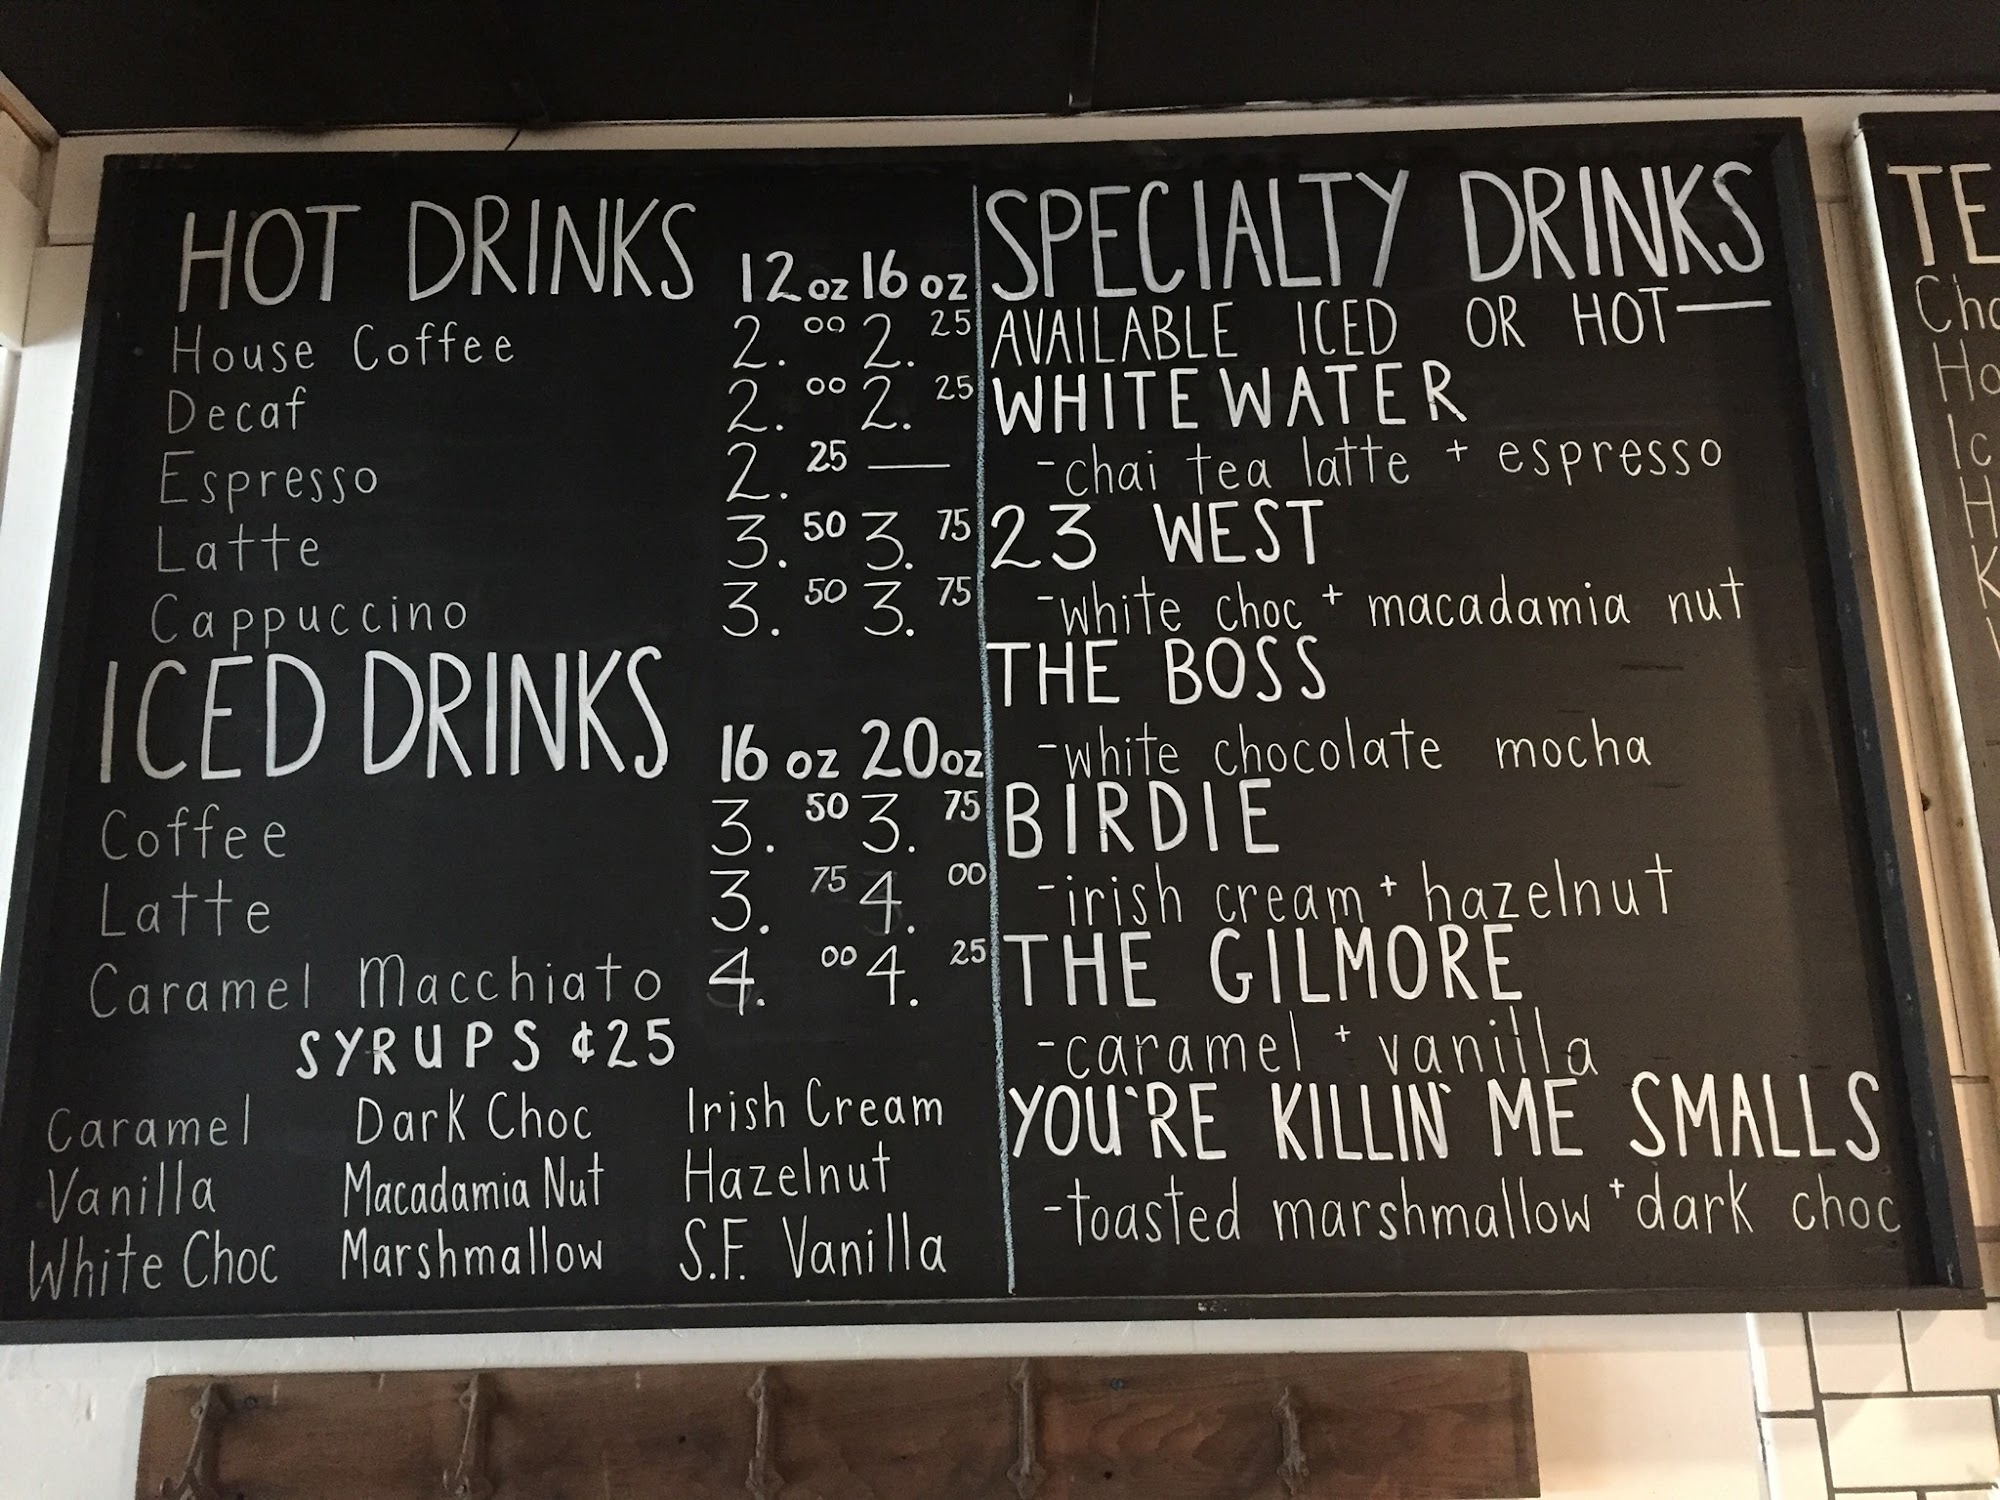 HOT DRINKS 12 oz 16 oz
House Coffee 2.00 2.25
Decaf 2.00 2.25
Espresso 2.25 —
Latte 3.50 3.75
Cappuccino 3.50 3.75
ICED DRINKS 16 oz 20 oz
Coffee 3.50 3.75
Latte 3.75 4.00
Caramel Macchiato 4.00 4.25
SYRUPS ¢25
Caramel Dark Choc Irish Cream
Vanilla Macadamia Nut Hazelnut
White Choc Marshmallow S.F. Vanilla
SPECIALTY DRINKS
AVAILABLE ICED OR HOT—
WHITEWATER
-chai tea latte + espresso
23 WEST
-white choc + macadamia nut
THE BOSS
-white chocolate mocha
BIRDIE
-irish cream + hazelnut
THE GILMORE
-caramel + vanilla
YOU'RE KILLIN' ME SMALLS
-toasted marshmallow + dark choc